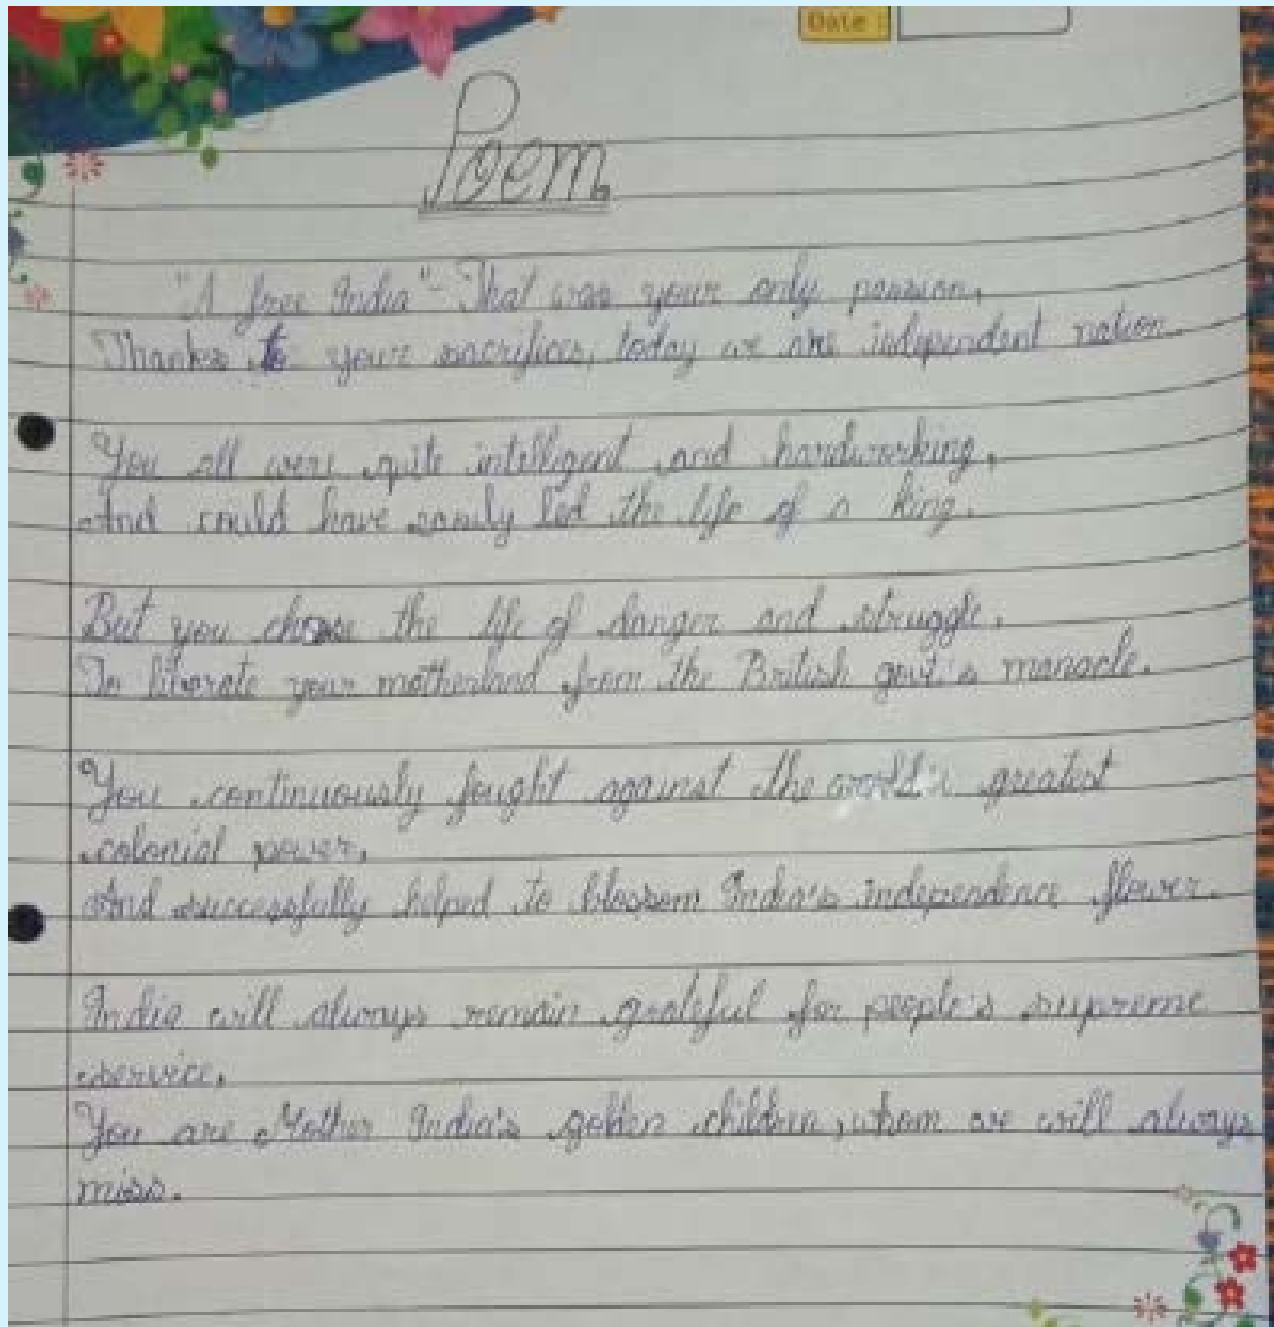 Date :
Poem
"A free India" - That was your only passion,
Thanks to your sacrifices, today we are independent nation.
You all were quite intelligent and hardworking,
And could have easily led the life of a king.
But you choose the life of danger and struggle,
To liberate your motherland from the British govt's manacle.
You continuously fought against the world's greatest
colonial power,
And successfully helped to blossom India's independence flower.
India will always remain grateful for people's supreme
service,
You are Mother India's golden children, whom we will always
miss.